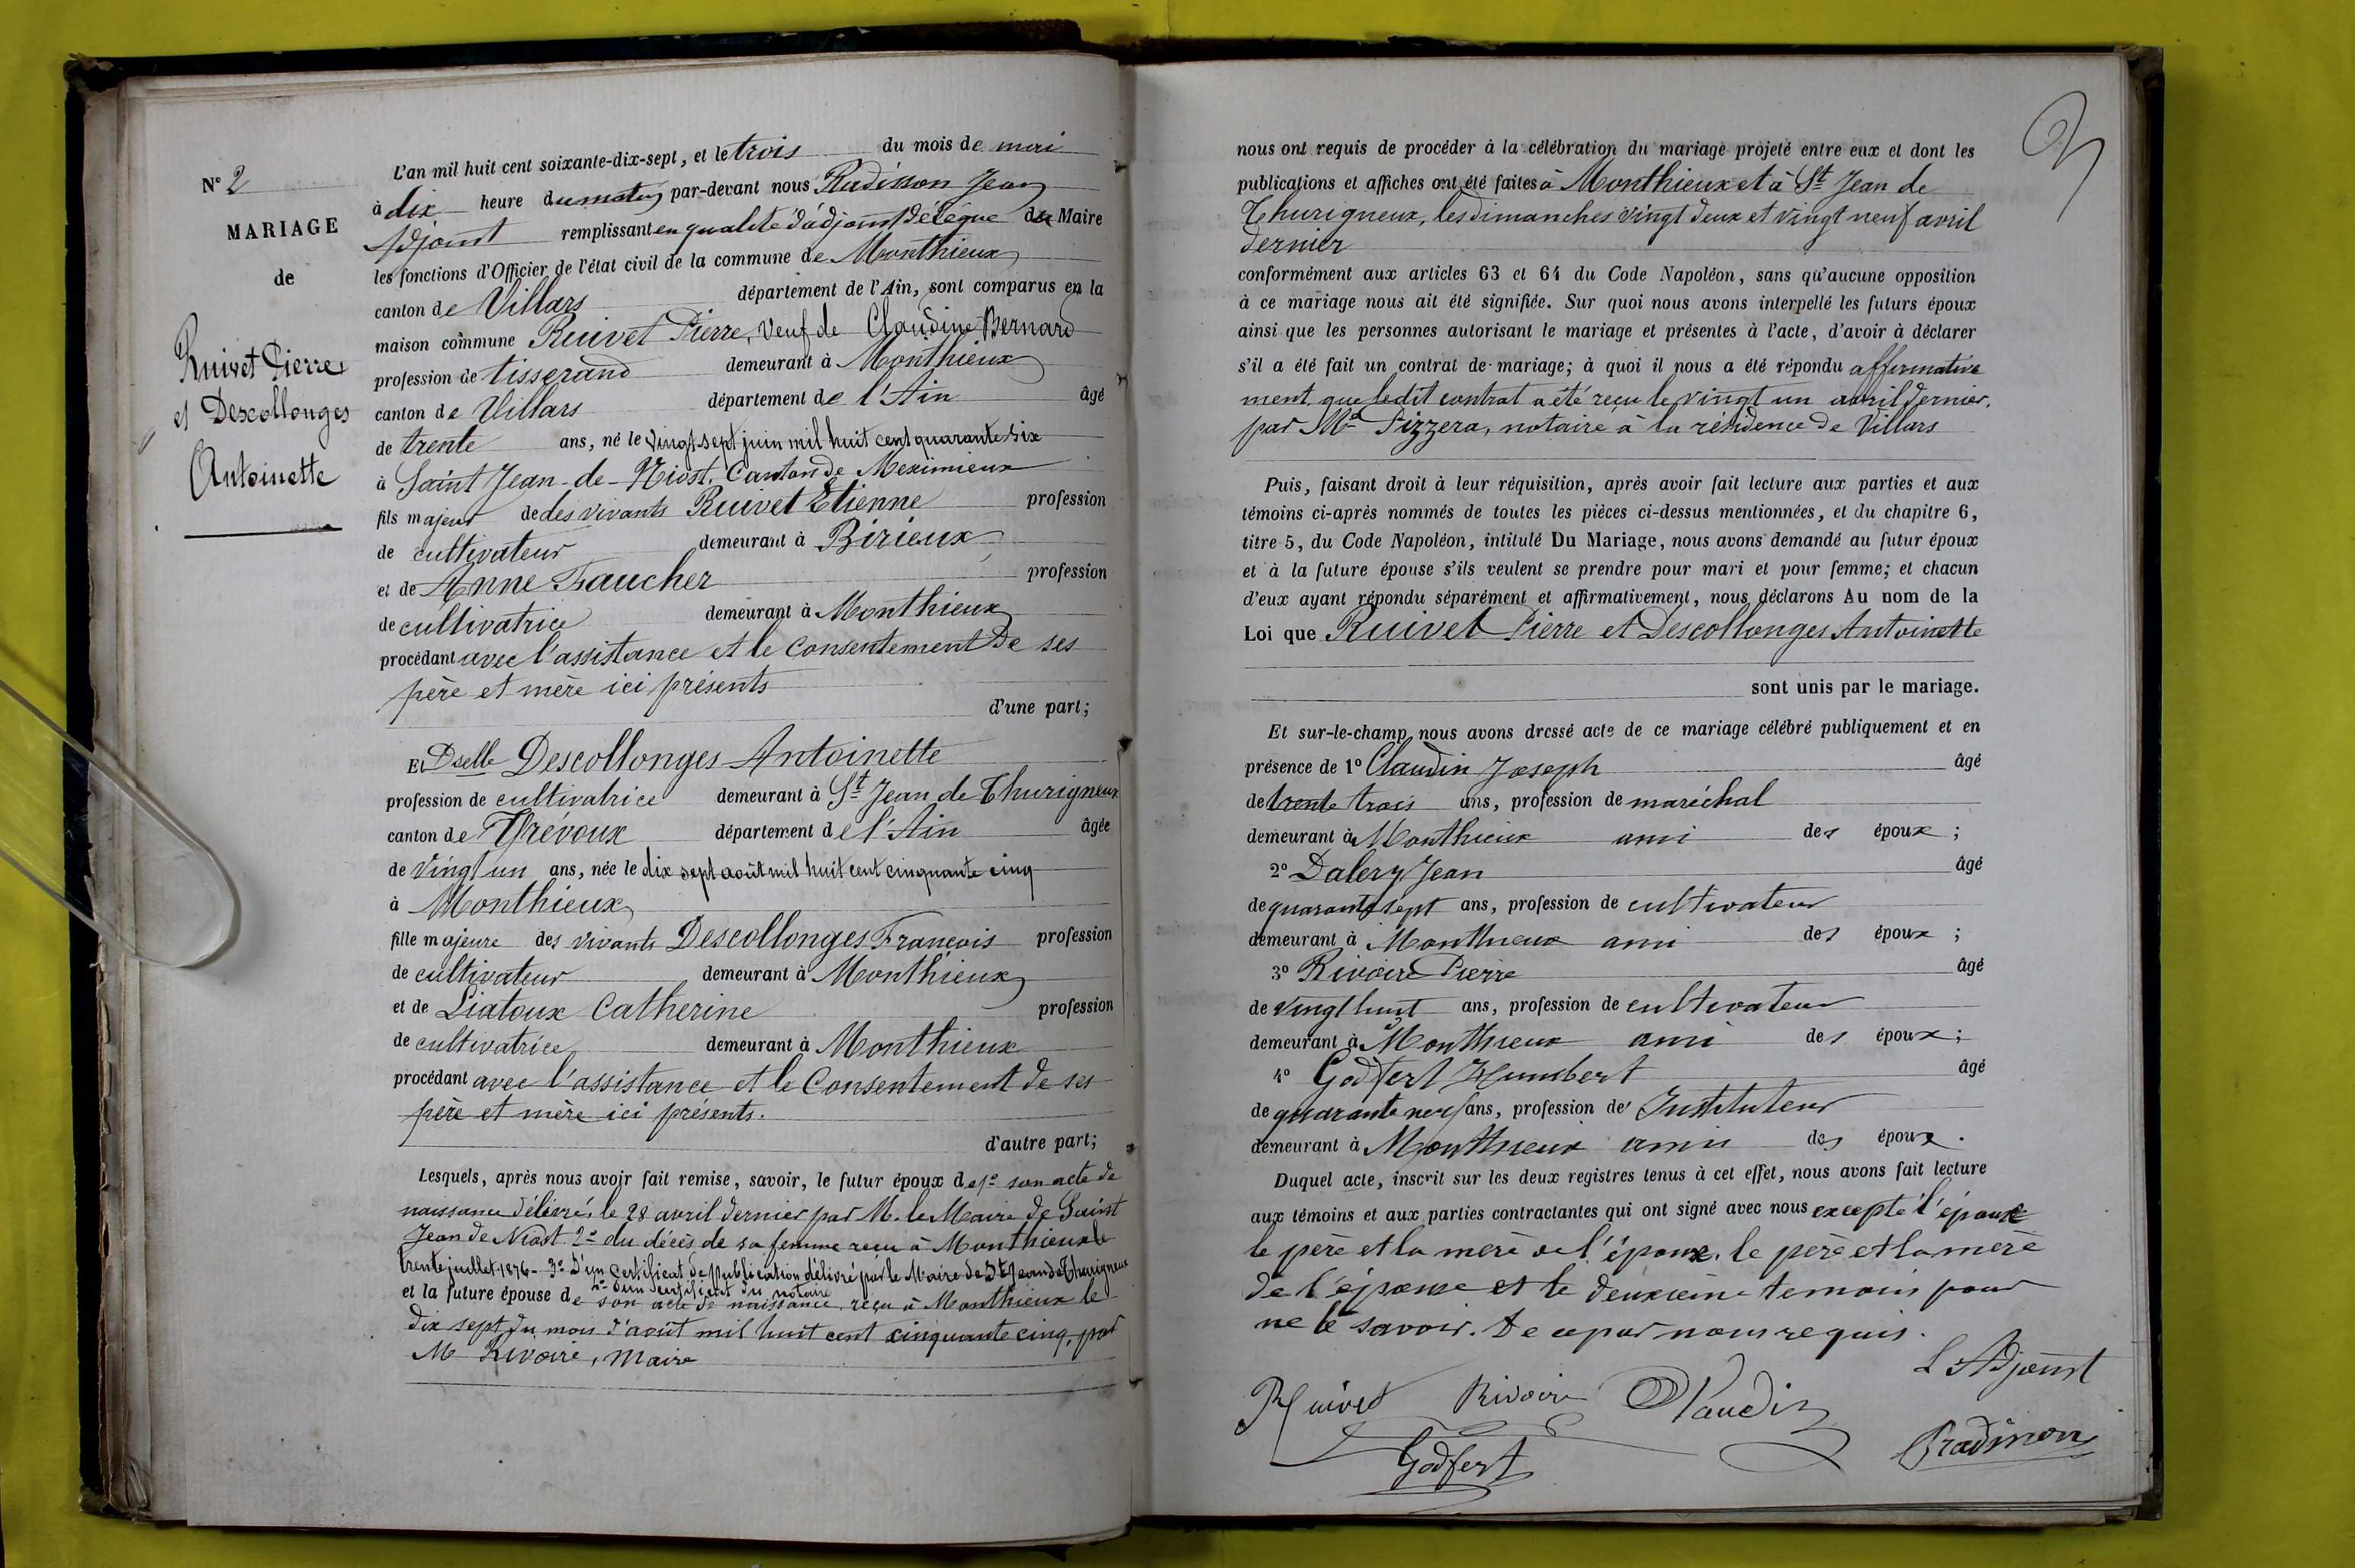 N° 2
MARIAGE
de
Ruivet Pierre
et Descollonges
Antoinette
L'an mil huit cent soixante-dix-sept, et le trois du mois de mai
à dix heure du matin par-devant nous Radisson Jean
Adjoint remplissant en qualité d'adjoint délégué du Maire
les fonctions d'Officier de l'état civil de la commune de Monthieux
canton de Villars département de l'Ain, sont comparus en la
maison commune Ruivet Pierre, veuf de Claudine Bernard
profession de tisserand demeurant à Monthieux
canton de Villars département de l'Ain âgé
de trente ans, né le vingt sept juin mil huit cent quarante six
à Saint Jean-de-Niost, Canton de Meximieux
fils majeur de des vivants Ruivet Etienne profession
de cultivateur demeurant à Birieux
et de Anne Faucher profession
de cultivatrice demeurant à Monthieux
procédant avec l'assistance et le consentement de ses
père et mère ici présents
d'une part;
Et Dselle Descollonges Antoinette
profession de cultivatrice demeurant à St Jean de Thurigneux
canton de Trévoux département de l'Ain âgée
de vingt un ans, née le dix sept août mil huit cent cinquante cinq
à Monthieux
fille majeure des vivants Descollonges François profession
de cultivateur demeurant à Monthieux
et de Liatoux Catherine profession
de cultivatrice demeurant à Monthieux
procédant avec l'assistance et le Consentement de ses
père et mère ici présents.
d'autre part;
Lesquels, après nous avoir fait remise, savoir, le futur époux de 1° son acte de
naissance délivré, le 28 avril dernier par M. le Maire de Saint
Jean de Niost. 2° du décès de sa femme reçu à Monthieux le
trente juillet 1876 - 3° D'un certificat de Publication délivré par le Maire de St Jean de Thurigneux
4° d'un certificat du notaire
et la future épouse de son acte de naissance, reçu à Monthieux le
dix sept du mois d'août mil huit cent cinquante cinq, par
M Rivoire, Maire
nous ont requis de procéder à la célébration du mariage projeté entre eux et dont les
publications et affiches ont été faites à Monthieux et à St Jean de
Thurigneux, les dimanches vingt deux et vingt neuf avril
dernier
conformément aux articles 63 et 64 du Code Napoléon, sans qu'aucune opposition
à ce mariage nous ait été signifiée. Sur quoi nous avons interpellé les futurs époux
ainsi que les personnes autorisant le mariage et présentes à l'acte, d'avoir à déclarer
s'il a été fait un contrat de mariage; à quoi il nous a été répondu affirmative
ment que ledit contrat a été reçu le vingt un avril dernier,
par Me Pizzera, notaire à la résidence de Villars
Puis, faisant droit à leur réquisition, après avoir fait lecture aux parties et aux
témoins ci-après nommés de toutes les pièces ci-dessus mentionnées, et du chapitre 6,
titre 5, du Code Napoléon, intitulé Du Mariage, nous avons demandé au futur époux
et à la future épouse s'ils veulent se prendre pour mari et pour femme; et chacun
d'eux ayant répondu séparément et affirmativement, nous déclarons Au nom de la
Loi que Ruivet Pierre et Descollonges Antoinette
sont unis par le mariage.
Et sur-le-champ nous avons dressé acte de ce mariage célébré publiquement et en
présence de 1° Claudin Joseph âgé
de trente trois ans, profession de maréchal
demeurant à Monthieux ami des époux;
2° Dalery Jean âgé
de quarante sept ans, profession de cultivateur
demeurant à Monthieux ami des époux;
3° Rivoire Pierre âgé
de vingt huit ans, profession de cultivateur
demeurant à Monthieux ami des époux;
4° Godfert Humbert âgé
de quarante neuf ans, profession de Instituteur
demeurant à Monthieux ami des époux.
Duquel acte, inscrit sur les deux registres tenus à cet effet, nous avons fait lecture
aux témoins et aux parties contractantes qui ont signé avec nous excepté l'épouse
le père et la mère de l'époux, le père et la mère
de l'épouse et le deuxième temoin pour
ne le savoir. De ce par nous requis.
L'Adjoint
Ruivet Rivoire Claudin
Godfert Radisson